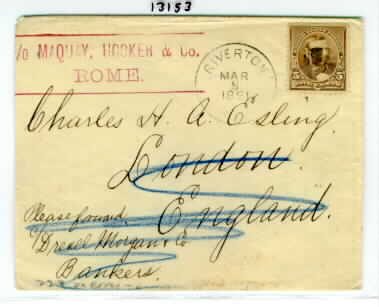 13153
/o MAQUAY, HOOKER & Co.
ROME.
RIVERTON
MAR
5
Charles H. A. Esling.
London.
England.
Please forward.
c/ Drexel Morgan & Co
Bankers.